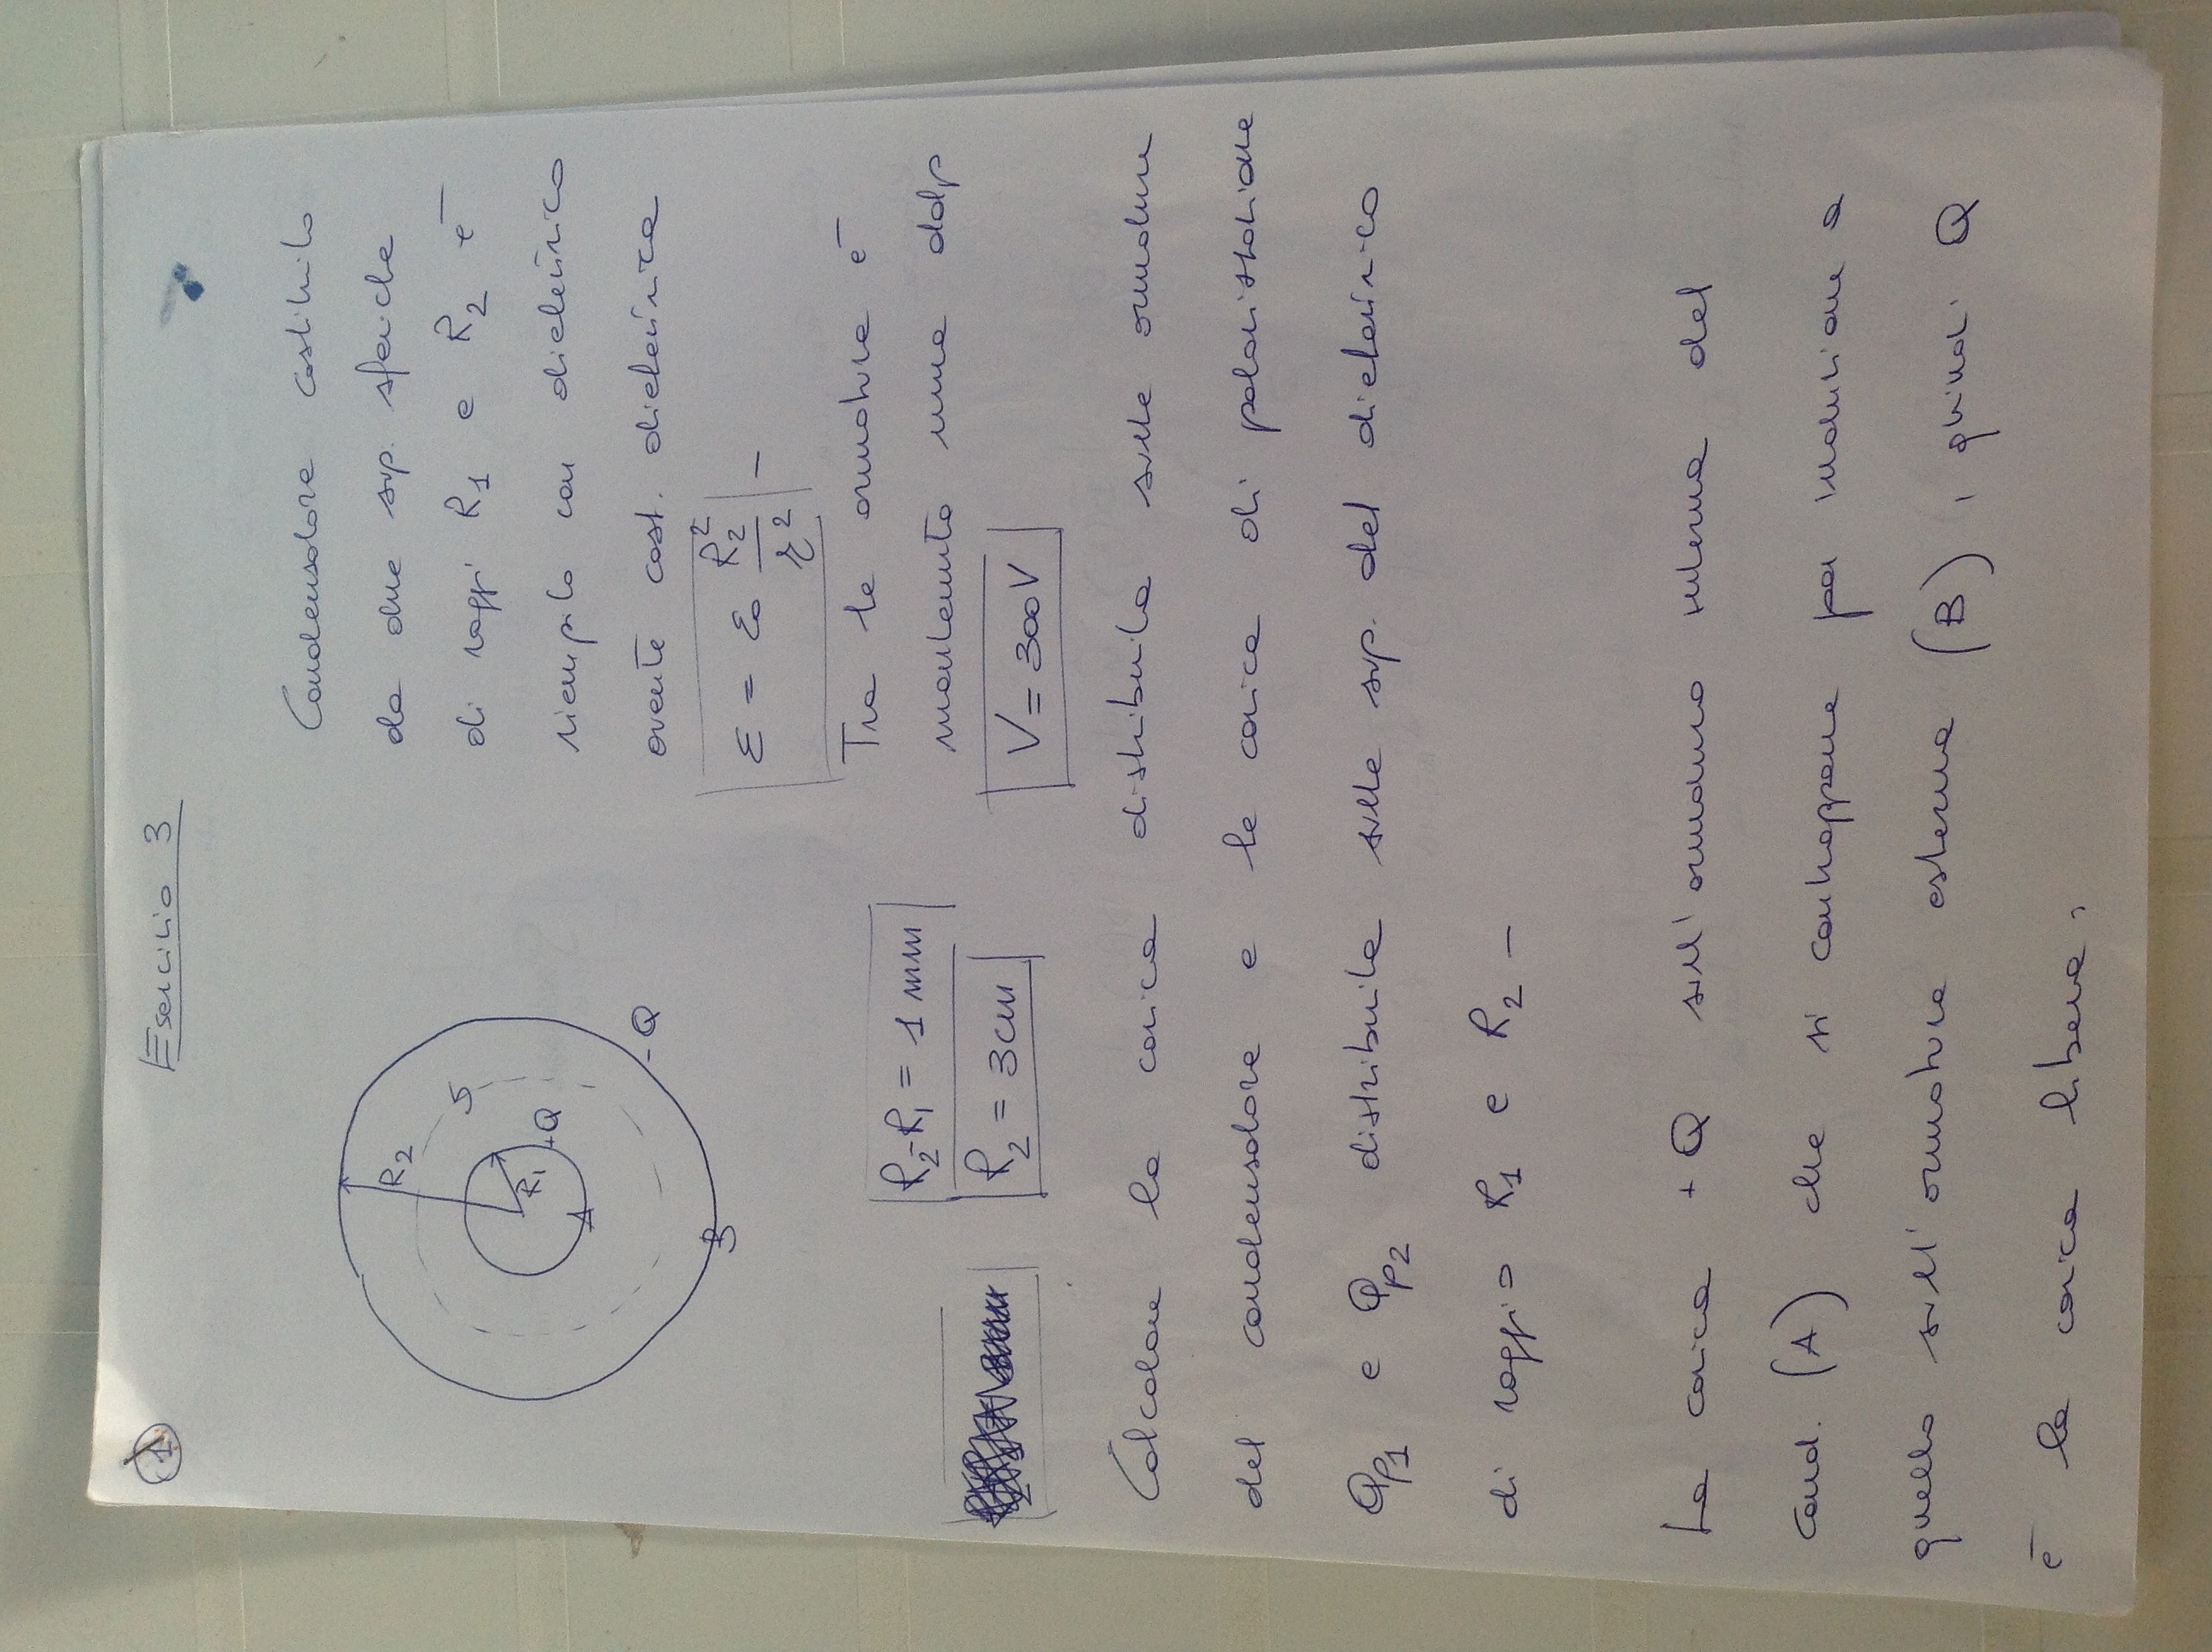 1
Esercizio 3
R2
S
R1
+Q
A
-Q
B
Condensatore costituito
da due sup. sferiche
di raggi R1 e R2 è
riempito con dielettrico
avente cost. dielettrica
ε = ε0 R2² / r² -
Tra le armature è
mantenuta una ddp
V = 300V
R2-R1 = 1 mm
R2 = 3cm
Calcolare la carica distribuita sulle armature
del condensatore e le carica di polarizzazione
Qp1 e Qp2 distribuite sulle sup. del dielettrico
di raggio R1 e R2 -
La carica +Q sull'armatura interna del
cond. (A) che si contrappone per induzione a
quella sull'armatura esterna (B), quindi Q
è la carica libera,